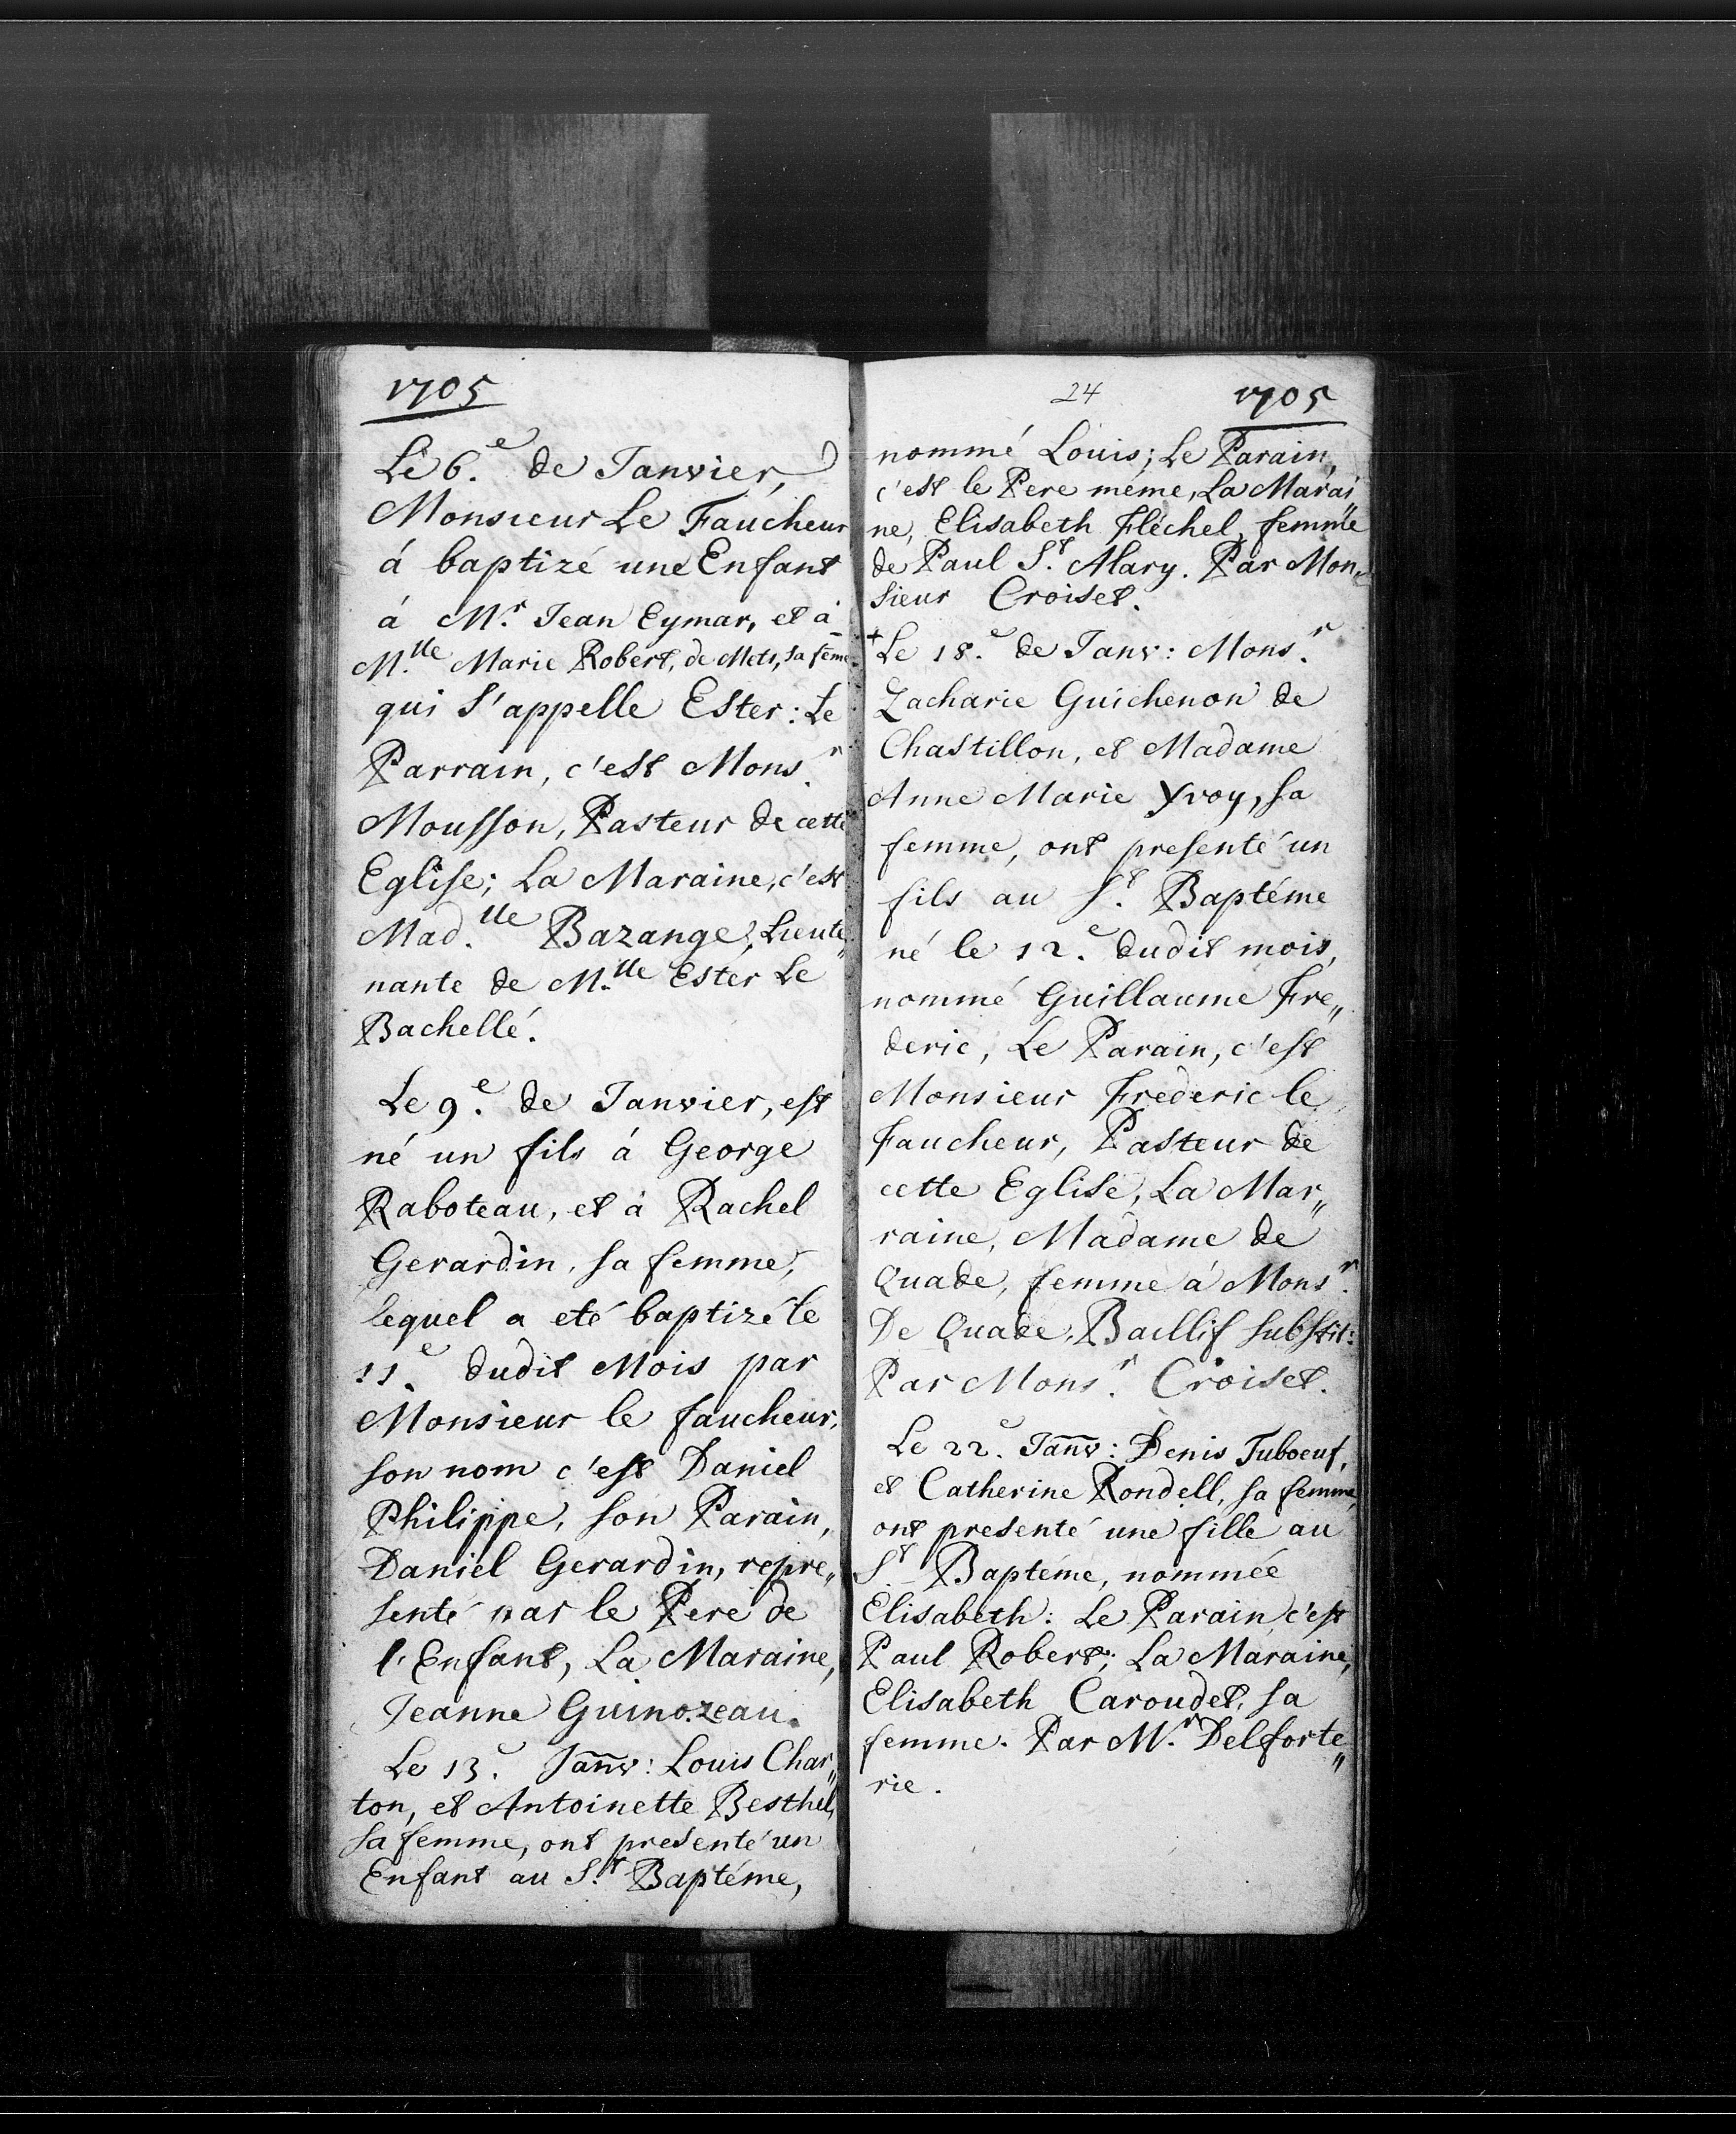 1705
Le 6.e de Janvier,
Monsieur Le Faucheur
á baptizé une Enfant
á M.r Jean Eymar, et à
M.lle Marie Robert, de Mets, sa fem̄e
qui s'appelle Ester: Le
Parrain, c'est Mons.r
Mousson, Pasteur de cette
Eglise; La Maraine, c'est
Mad.lle Bazange, Lieute„
nante de M.lle Ester Le
Bachellé.
Le 9.e de Janvier, est
né un fils á George
Raboteau, et à Rachel
Gerardin, sa femme,
lequel a eté baptizé le
11.e dudit Mois par
Monsieur le faucheur,
son nom c'est Daniel
Philippe, son Parain,
Daniel Gerardin, repre„
senté par le Pere de
l'Enfant, La Maraine,
Jeanne Guinozeau.
Le 13.e Jan̄v: Louis Char„
ton, et Antoinette Besthel,
sa femme, ont presenté un
Enfant au S.t Baptéme,
24
1705
nommé Louis; Le Parain,
c'est le Pere méme, La Marai„
ne, Elisabeth Fléchel, femme
de Paul S.t Mary. Par Mon„
sieur Croiset.
+ Le 18.e de Janv: Mons.r
Zacharie Guichenon de
Chastillon, et Madame
Anne Marie Yvoy, sa
femme, ont presenté un
fils au S.t Baptéme
né le 12.e dudit mois,
nommé Guillaume Fre„
deric, Le Parain, c'est
Monsieur Frederic le
Faucheur, Pasteur de
cette Eglise, La Mar„
raine, Madame de
Quade, femme á Mons.r
De Quade, Baillif substit:
Par Mons.r Croiset.
Le 22.e Jan̄v: Denis Tuboeuf,
et Catherine Rondell, sa femme,
ont presenté une fille au
S.t Baptéme, nommée
Elisabeth: Le Parain, c'est
Paul Robert; La Maraine,
Elisabeth Caroudet, sa
femme. Par M.r Delforte„
rie.